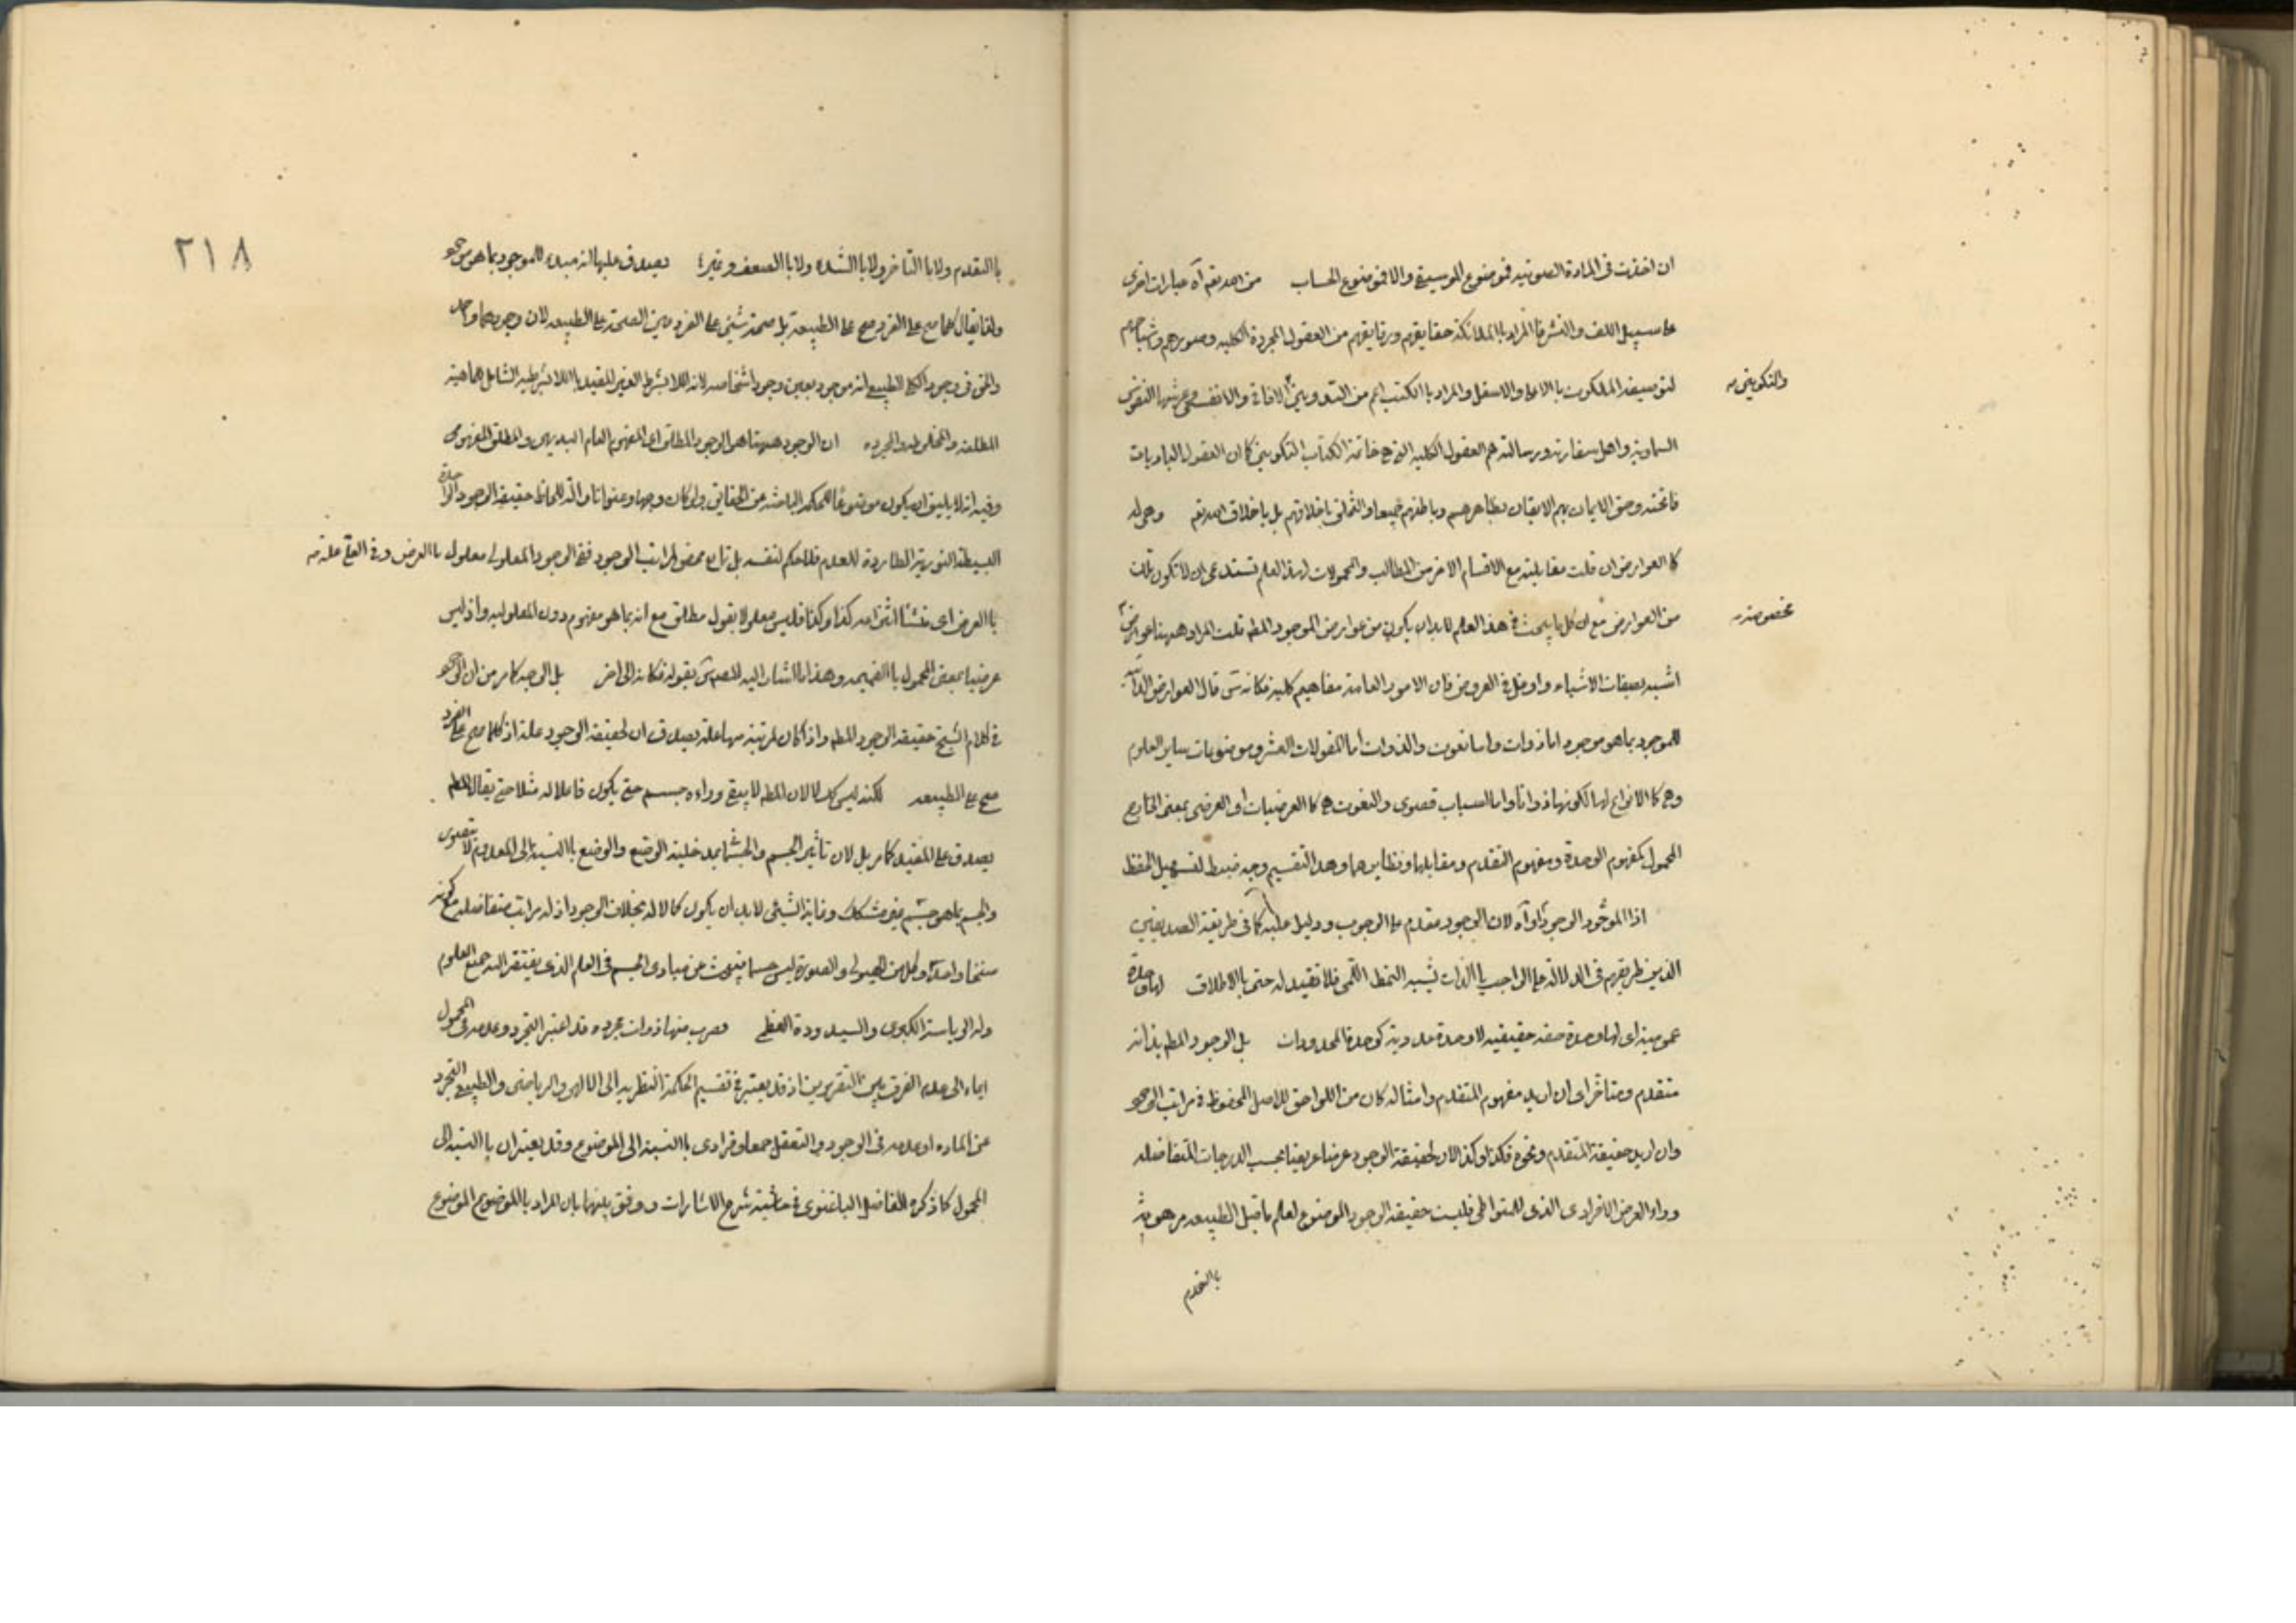 ان اخذت فى المادة الصوتيه فموضوع الموسيقى والا فموضوع الحساب من احد يقم آه عبارات اخرى
على سبيل اللف والنشر فالمراد بالملائكة حقايقهم ورقايقهم من العقول المجردة الكليه وصورهم واشباحهم
لتوصيفه الملكوت بالاعلى والاسفل والمراد بالكتب اعم من التدوينى الافاقى والانفسى وعرشها النفوس
والتكوينى
السماوية واهل سفارته ورسالته هم العقول الكليه التى هى خاتمة الكتاب التكوينى كما ان العقول الباديات
فاتحته وحق الايمان بهم الايقان بظاهرهم وباطنهم جميعا والتخلق باخلاقهم بل باخلاق الله وهى له
كالعوارض ان قلت مقابليته مع الاقسام الاخر من المطالب والمحمولات لهذا العلم تستدعى ان لا تكون تلك
من العوارض مع ان كل ما يبحث فى هذا العلم لابد ان يكون من عوارض الموجود المطم قلت المراد ههنا عوارض
مخصوصة
اشبه بصفات الاشياء وادخل فى العروض فان الامور العامة مفاهيم كلية فكانه قال العوارض الذاتية
للموجود بما هو موجود اما ذوات واما نعوت والذوات اما المقولات العشر وموضوعات ساير العلوم
وهى كالانواع لها لكونها ذواتا واما اسباب قصوى والنعوت هى كالعرضيات اذ العرضى بمعنى الخارج
المحمول كمفهوم الوحدة ومفهوم التقدم ومقابلها ونظايرهما وهذا التقسيم وجه ضبط لتسهيل الحفظ
اذا الموجود الوجود اولا آه لان الوجود مقدم على الوجوب ودليل عليه كما فى طريقة الصديقين
الذين طريقهم فى الدلالة على الواجب بالذات يشبه النمط اللمى فلا تقيد له حتى بالاطلاق لها وحدة
عمومية اى لها وحدة حقه حقيقيه لا وحدة عدديه كوحدة المحدودات بل الوجود المطم بذاته
متقدم ومتاخر اى ان اريد مفهوم المتقدم وامثاله كان من اللواحق للاصل المحفوظ فى مراتب الوجود
وان اريد حقيقة المتقدم ونحوه فكذا وكذا لان لحقيقة الوجود عرضا عريضا بحسب الدرجات المتفاضله
وراء العرض الافرادى الذى للمتواطى فليست حقيقة الوجود الموضوع لعلم ما قبل الطبيعه مرهونة
بالتقدم
٢١٨
بالتقدم ولا بالتاخر ولا بالشده ولا بالضعف وغيرها يصدق عليها انه مبدء للموجود بما هو موجود
ولذا يقال كلما صح على الفرد صح على الطبيعة بل صحة شئى على الفرد عين الصحة على الطبيعه لان وجودهما واحد
والحق فى وجود الكلى الطبيعى انه موجود بعين وجود اشخاصه لانه اللابشرط الغير المقيد باللابشرطيه الشامل للماهية
المطلقه والمخلوطه والمجرده ان الوجود ههنا هو الوجود المطلق اى المفهوم العام البديهى والمطلق المفهومى
وفيه انه لا يليق ان يكون موضوعا للحكمه الباحثه عن الحقايق ولو كان وجها وعنوانا وآلة للحاظ حقيقه الوجود الواحدة
البسيطة النورية الطاردة للعدم فلا حكم لنفسه بل تابع محض لمراتب الوجود ففى الوجود المعلولى معلول بالعرض وفى العلى علة
بالعرض اى منشأ انتزاعه كذا وكذا فليس معلولا بقول مطلق مع انه بما هو مفهوم دون المعلوليه واذ ليس
عرضيا بمعنى المحمول بالضميمه وهذا ما اشار اليه المصنف بقوله فكانه الى اخر بل الوجه كما مر من ان الوجود
فى كلام الشيخ حقيقه الوجود المطم واذا كان لمرتبة منها علة يصدق ان لحقيقة الوجود علة اذ كلما صح على الفرد
صح على الطبيعه لكنه ليس كمالا لان المطم لا يبقى وراءه جسم حتى يكون فاعلا له مثلا حتى يقال المطم
يصدق على المقيد كما مر بل لان تاثير الجسم والجسمانى بمدخلية الوضع والوضع بالنسبة الى المعدوم لا يتصور
والجسم بما هو جسم غير مشكك وغاية الشئى لابد ان يكون كمالا له بخلاف الوجود اذ له مراتب متفاضله مع كونه
سنخا واحدا وكل من الهيولى والصورة ليس جسما فيبحث عن مبادى الجسم فى العلم الذى يفتقر اليه جميع العلوم
وله الرياسة الكبرى والسيدودة العظمى وضرب منها ذوات مجرده قد اعتبر التجرد وعدمه فى المحمول
ايماء الى عدم الفرق بين التقريرين اذ قد يعتبر فى تقسيم الحكمة النظريه الى الالهى والرياضى والطبيعى التجرد
عن الماده او عدمه فى الوجود والتعقل جمعا وفرادى بالنسبة الى الموضوع وقد يعتبران بالنسبة الى
المحمول كما ذكره الفاضل الباغنوى فى حاشية شرح الاشارات ووفق بينهما بان المراد بالموضوع الموضوع